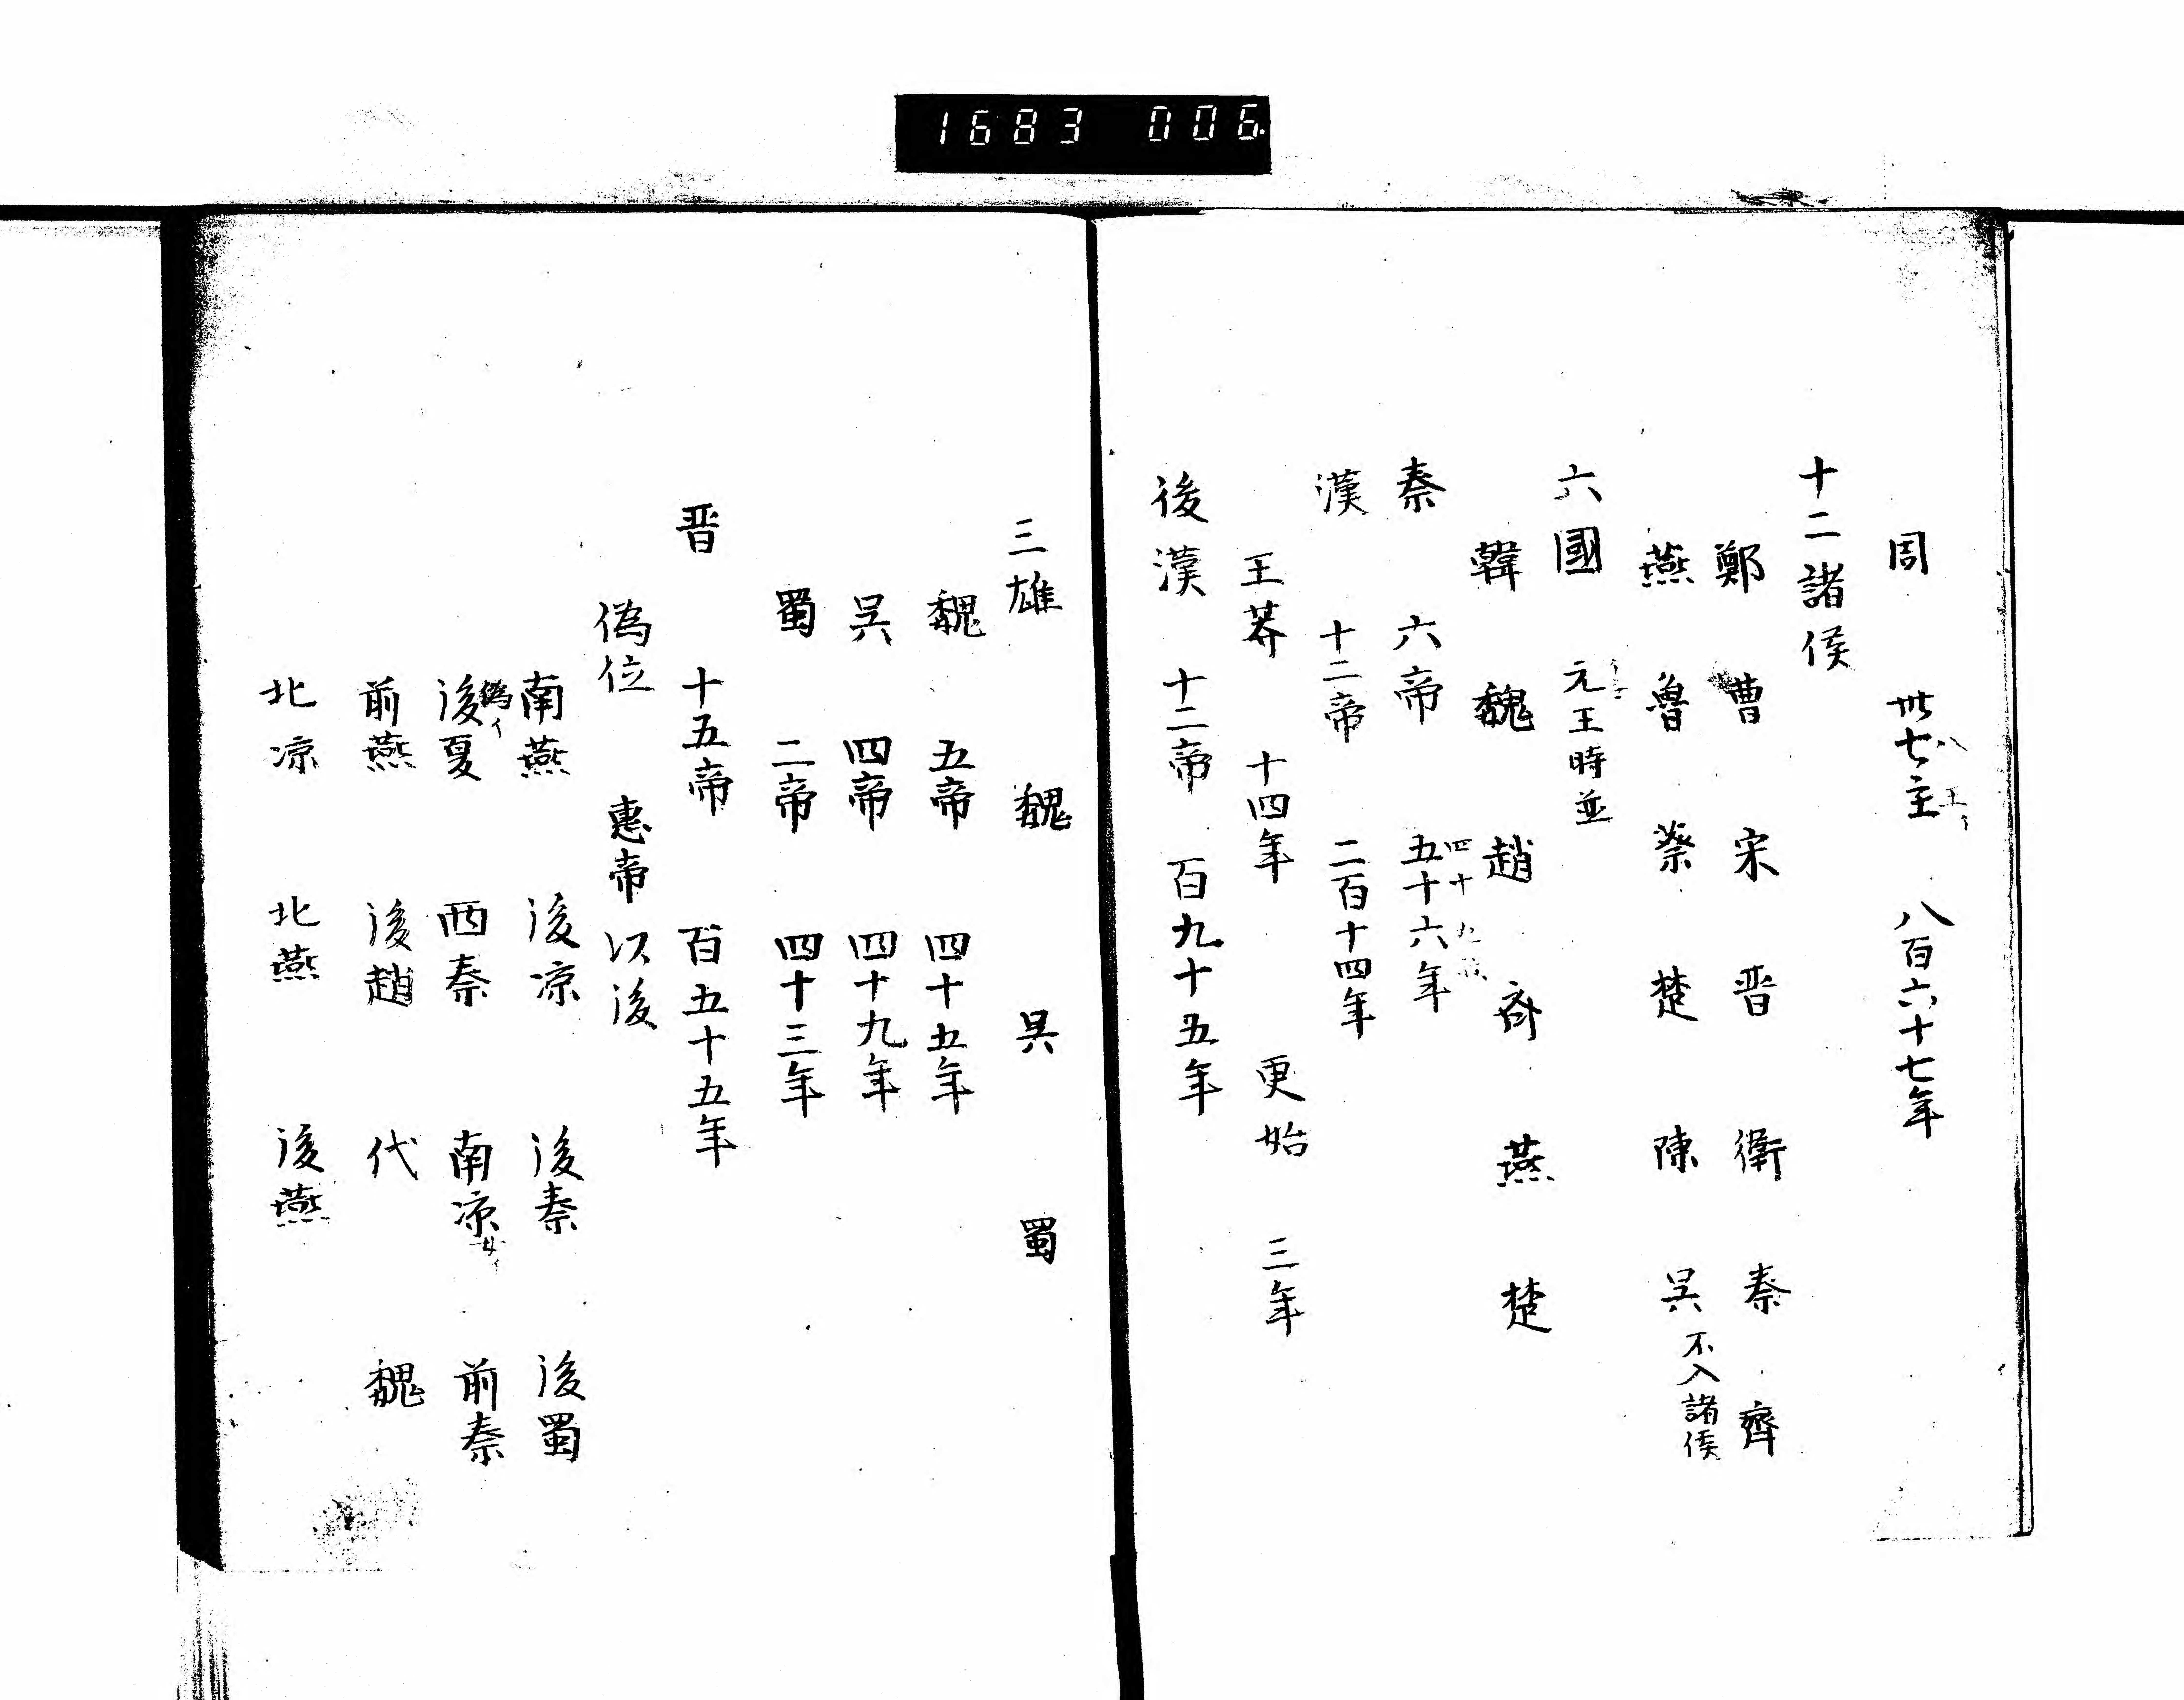 1683 006.
周 卅七主 八百六十七年
八 王イ
十二諸侯
鄭 曹 宋 晋 衛 秦 齊
燕 魯 蔡 楚 陳 吴 不入諸侯
六國 元王時並
韓 魏 趙 斉 燕 楚
秦 六帝 五十六年
四十九
漢 十二帝 二百十四年
王莽 十四年 更始 三年
後漢 十二帝 百九十五年
三雄 魏 吴 蜀
魏 五帝 四十五年
吴 四帝 四十九年
蜀 二帝 四十三年
晋 十五帝 百五十五年
偽位 惠帝以後
南燕 後凉 後秦 後蜀
偽イ
後夏 西秦 南凉 前秦
前燕 後趙 代 魏
北凉 北燕 後燕